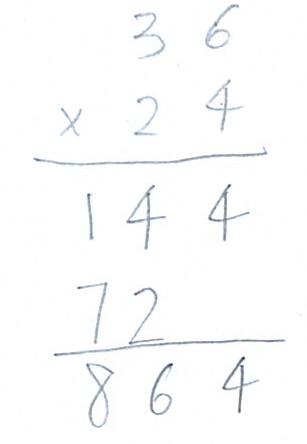 3 6
× 2 4
1 4 4
7 2
8 6 4